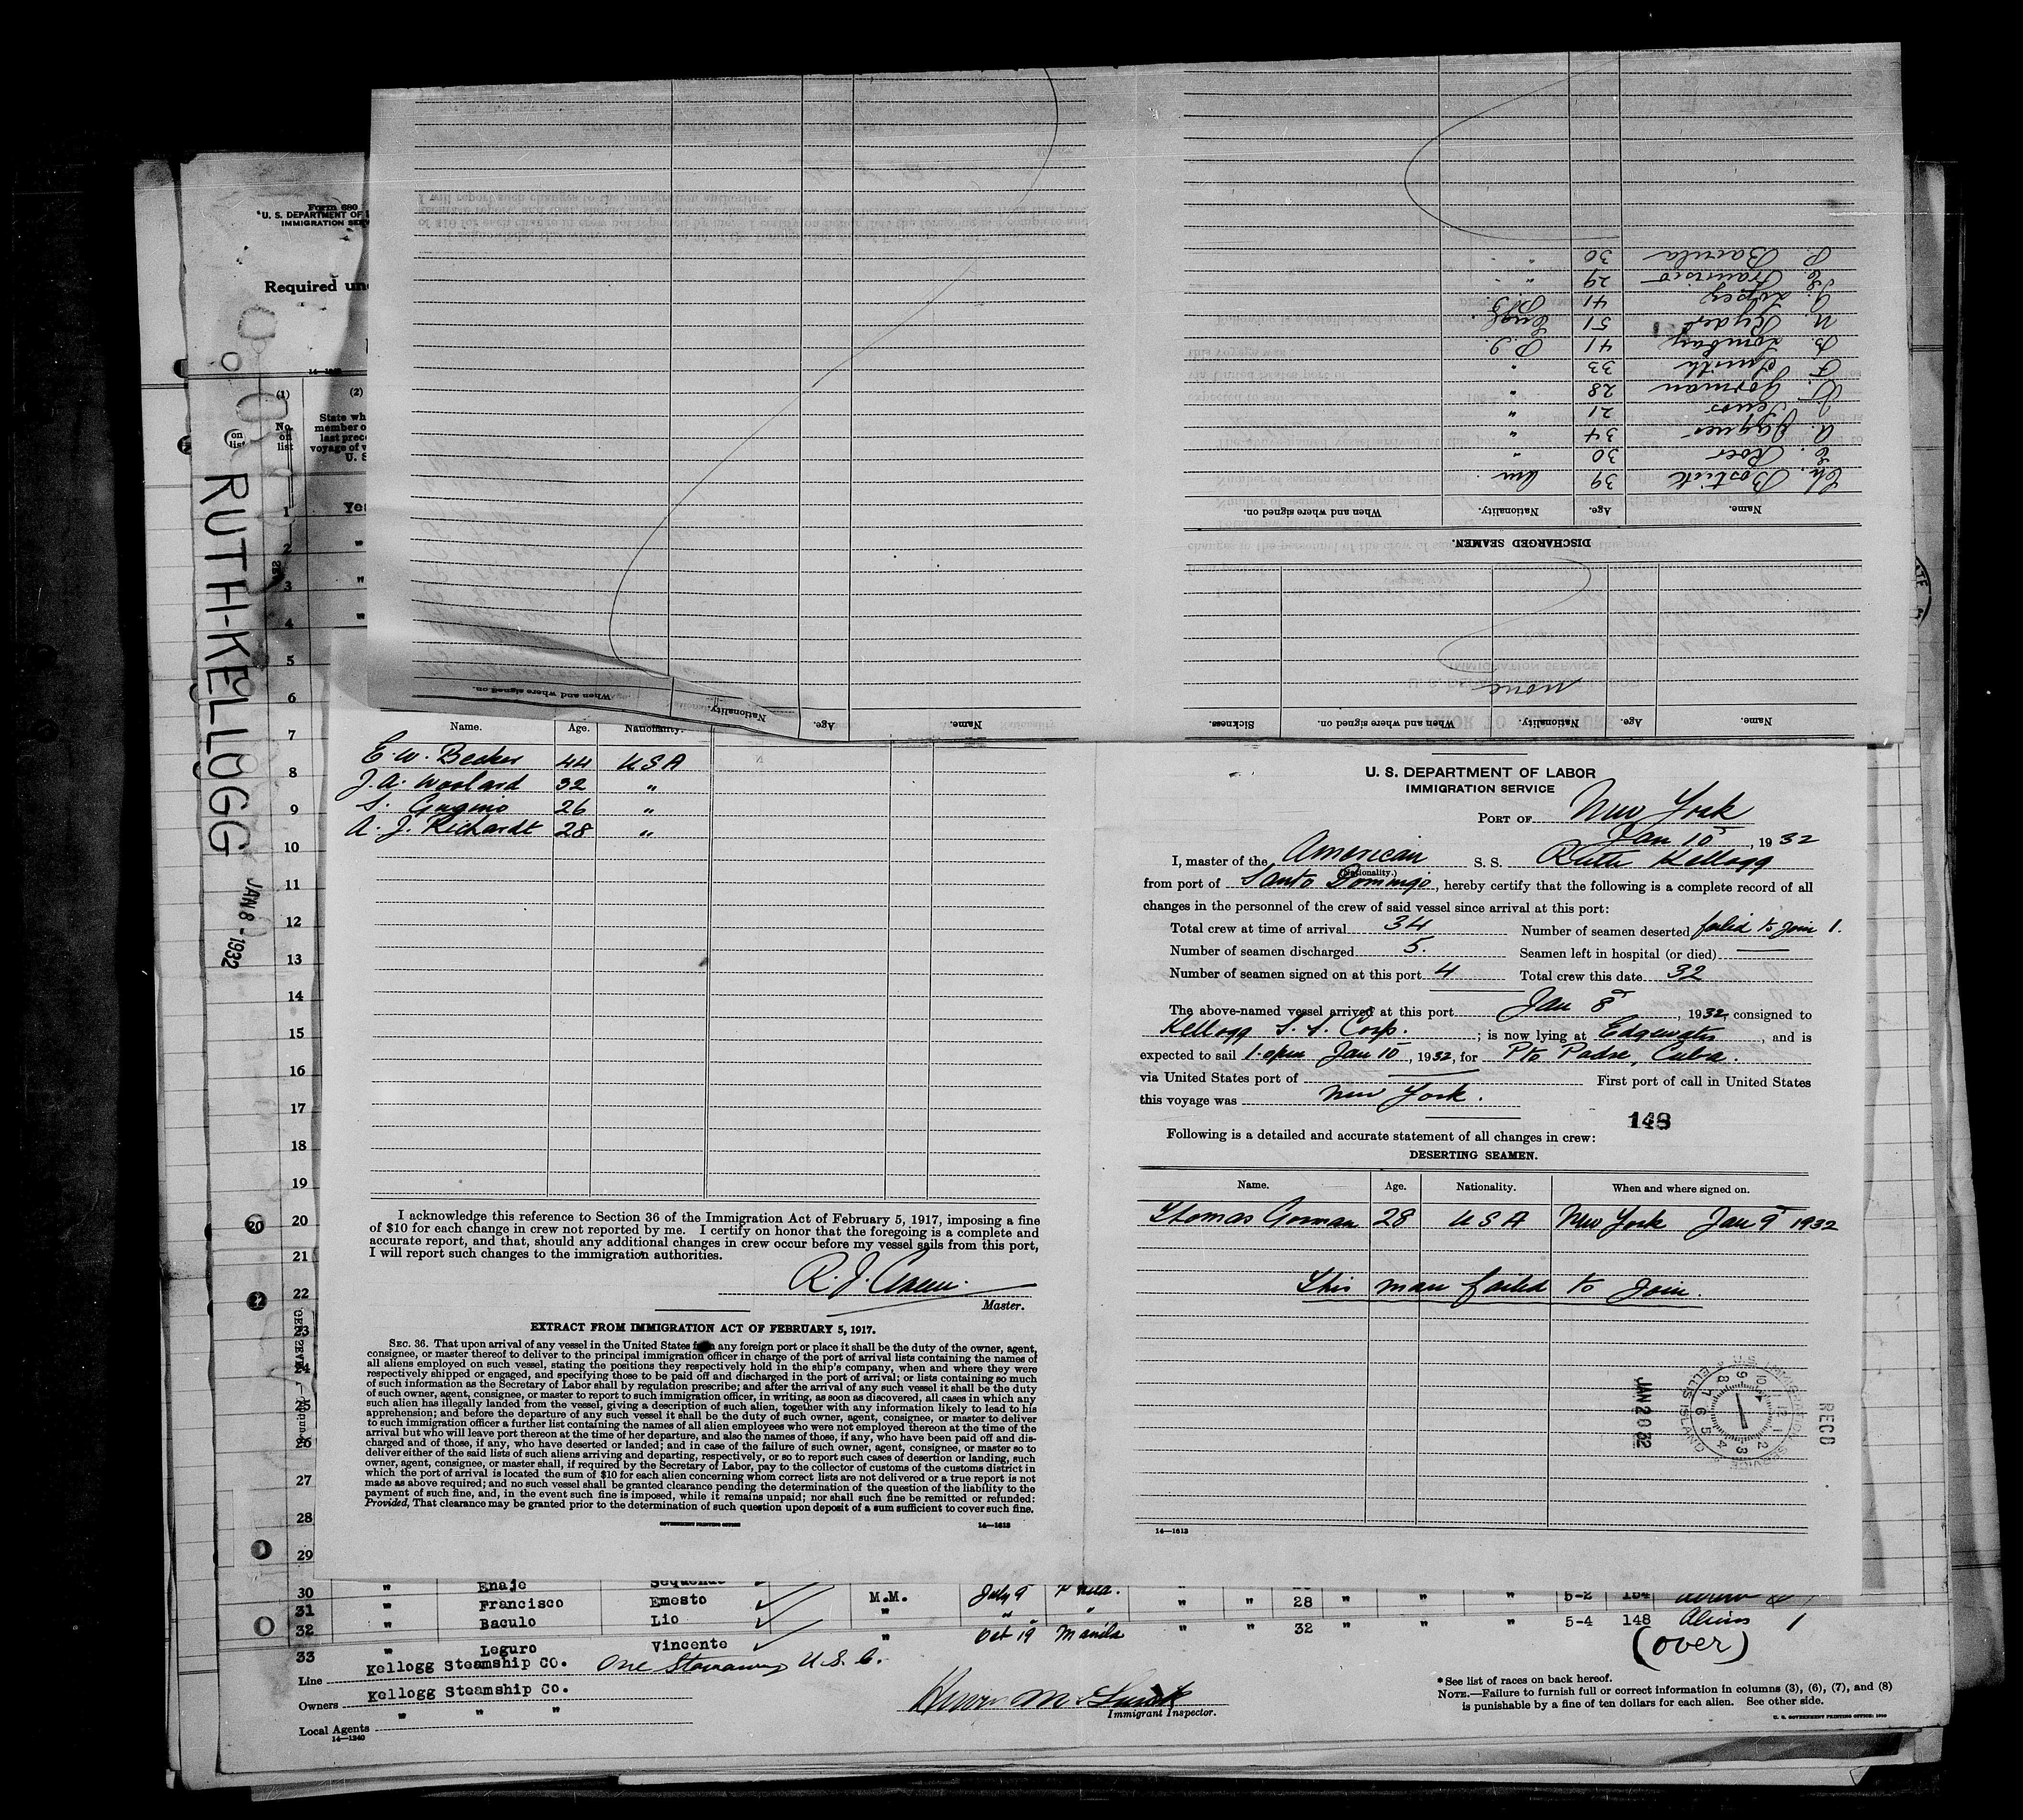 Form 680
U. S. DEPARTMENT OF
IMMIGRATION
Required
14—1240
(1)
No. on list
(2)
State wh
member o
last prece
voyage of v
U. S.
on list
Yes
RUTH-KELLOGG
JAN 8 - 1932
1
2
3
4
5
6
7
8
9
10
11
12
13
14
15
16
17
18
19
20
21
22
23
24
25
26
27
28
29
When and where signed on.
Nationality.
Age.
Name.
Name. Age. Nationality. When and where signed on. Sickness.
none
DISCHARGED SEAMEN.
Name. Age. Nationality. When and where signed on.
Ch. Bostick 39 Am
E. Roer 30 "
A. 34 "
J. 21 "
T. Gorman 28 "
F. Smith 33 "
B. Lombay 41 P.I.
N. Ryder 51 Engl
G. 41 P.I.
E. Francisco 29 "
P. 30 "
Name. Age. Nationality.
E. W. Becker 44 USA
J. A. Woolard 32 "
S. Gugino 26 "
A. J. Richardt 28 "
I acknowledge this reference to Section 36 of the Immigration Act of February 5, 1917, imposing a fine
of $10 for each change in crew not reported by me. I certify on honor that the foregoing is a complete and
accurate report, and that, should any additional changes in crew occur before my vessel sails from this port,
I will report such changes to the immigration authorities.
R. J.
Master.
EXTRACT FROM IMMIGRATION ACT OF FEBRUARY 5, 1917.
SEC. 36. That upon arrival of any vessel in the United States from any foreign port or place it shall be the duty of the owner, agent,
consignee, or master thereof to deliver to the principal immigration officer in charge of the port of arrival lists containing the names of
all aliens employed on such vessel, stating the positions they respectively hold in the ship's company, when and where they were
respectively shipped or engaged, and specifying those to be paid off and discharged in the port of arrival; or lists containing so much
of such information as the Secretary of Labor shall by regulation prescribe; and after the arrival of any such vessel it shall be the duty
of such owner, agent, consignee, or master to report to such immigration officer, in writing, as soon as discovered, all cases in which any
such alien has illegally landed from the vessel, giving a description of such alien, together with any information likely to lead to his
apprehension; and before the departure of any such vessel it shall be the duty of such owner, agent, consignee, or master to deliver
to such immigration officer a further list containing the names of all alien employees who were not employed thereon at the time of the
arrival but who will leave port thereon at the time of her departure, and also the names of those, if any, who have been paid off and dis-
charged and of those, if any, who have deserted or landed; and in case of the failure of such owner, agent, consignee, or master so to
deliver either of the said lists of such aliens arriving and departing, respectively, or so to report such cases of desertion or landing, such
owner, agent, consignee, or master shall, if required by the Secretary of Labor, pay to the collector of customs of the customs district in
which the port of arrival is located the sum of $10 for each alien concerning whom correct lists are not delivered or a true report is not
made as above required; and no such vessel shall be granted clearance pending the determination of the question of the liability to the
payment of such fine, and, in the event such fine is imposed, while it remains unpaid; nor shall such fine be remitted or refunded:
Provided, That clearance may be granted prior to the determination of such question upon deposit of a sum sufficient to cover such fine.
GOVERNMENT PRINTING OFFICE 14—1613
U. S. DEPARTMENT OF LABOR
IMMIGRATION SERVICE
PORT OF New York
Jan 10, 1932
I, master of the American S. S. Ruth Kellogg
(Nationality.)
from port of Santo Domingo, hereby certify that the following is a complete record of all
changes in the personnel of the crew of said vessel since arrival at this port:
Total crew at time of arrival 34 Number of seamen deserted failed to join 1.
Number of seamen discharged 5. Seamen left in hospital (or died) —
Number of seamen signed on at this port 4 Total crew this date 32
The above-named vessel arrived at this port Jan 8, 1932, consigned to
Kellogg S. S. Corp.; is now lying at Edgewater, and is
expected to sail 1.0pm Jan 10, 1932, for Pto Padre, Cuba.
via United States port of — First port of call in United States
this voyage was New York.
148
Following is a detailed and accurate statement of all changes in crew:
DESERTING SEAMEN.
Name. Age. Nationality. When and where signed on.
Thomas Gorman 28 USA New York Jan 9 1932
This man failed to join.
REC'D
JAN 20 32
U. S. IMMIGRATION SERVICE
ELLIS ISLAND
14—1613
30 " Enaje
31 " Francisco Emesto M.M. July 9 Phila. " " 28 " " " 5-2 154
32 " Baculo Lio " " " " " 32 " " " 5-4 148 Aliens 1
33 " Leguro Vincente " Oct 19 Manila
(over)
Line Kellogg Steamship Co. One Stowaway U. S. C.
Owners Kellogg Steamship Co.
Local Agents " " "
14—1240
Immigrant Inspector.
*See list of races on back hereof.
NOTE.—Failure to furnish full or correct information in columns (3), (6), (7), and (8)
is punishable by a fine of ten dollars for each alien. See other side.
U. S. GOVERNMENT PRINTING OFFICE: 1930